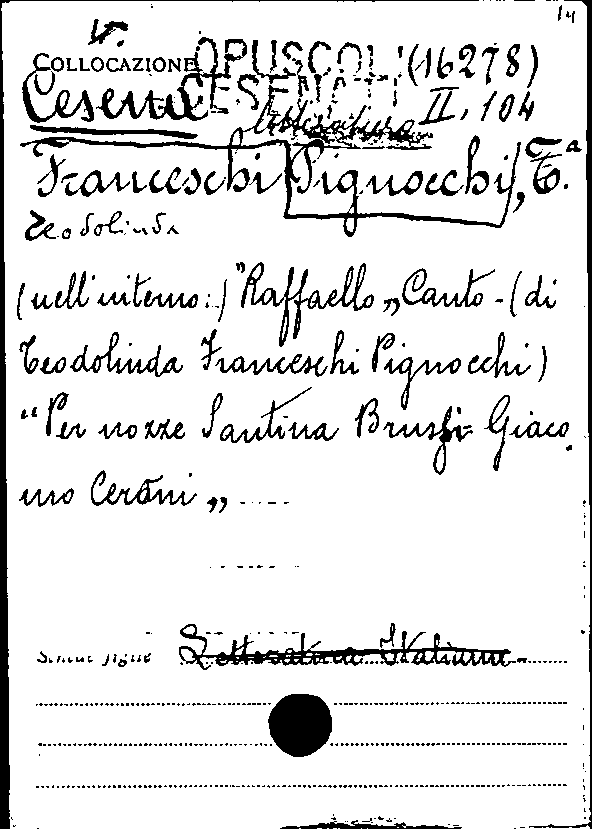 14
V.
COLLOCAZIONE OPUSCOLI (16278)
Cesena CESENATI II, 104
letteratura
Franceschi Pignocchi, T.a
Teodolinda
(nell'interno:) "Raffaello„ Canto - (di
Teodolinda Franceschi Pignocchi)
"Per nozze Santina Brussi - Giaco
mo Ceroni„
Letteratura Italiana